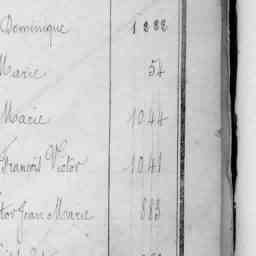 Dominique 1222
Marie 54
Marie 1044
François Victor 1041
tor Jean Marie 883